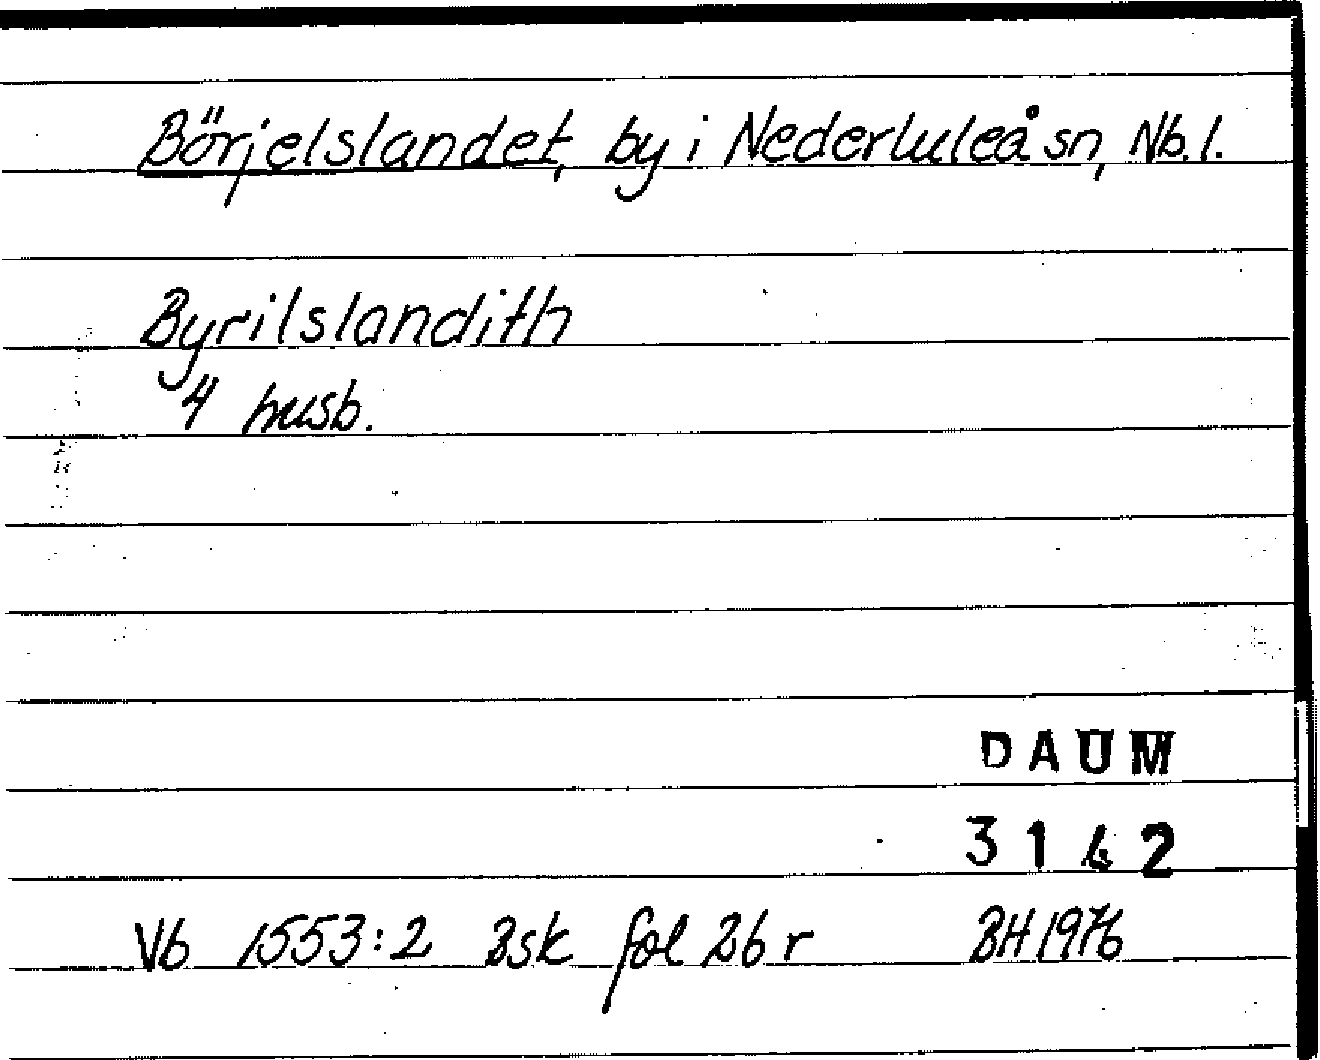 Börjelslandet, by i Nederluleå sn, Nb. l.
Byrilslandith
4 husb.
DAUM
3142
Vb 1553:2 Bsk fol 26 r BH 1976